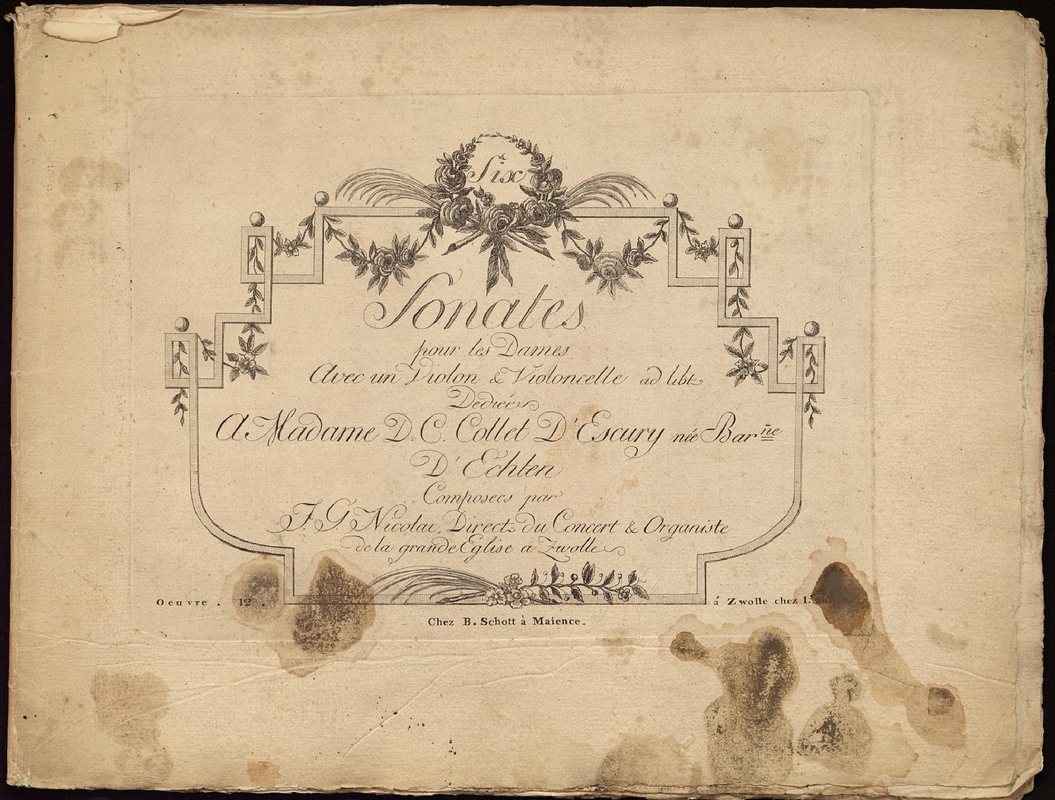 Six
Sonates
pour les Dames
Avec un Violon & Violoncelle ad libt
Dediées
A Madame D. C. Collet D'Escury née Bar ñe
D'Echten
Composees par
F. G Nicolai, Direct. du Concert & Organiste
de la grande Eglise a Zwolle
Oeuvre . 12 . á Zwolle chez
Chez B. Schott à Maience.